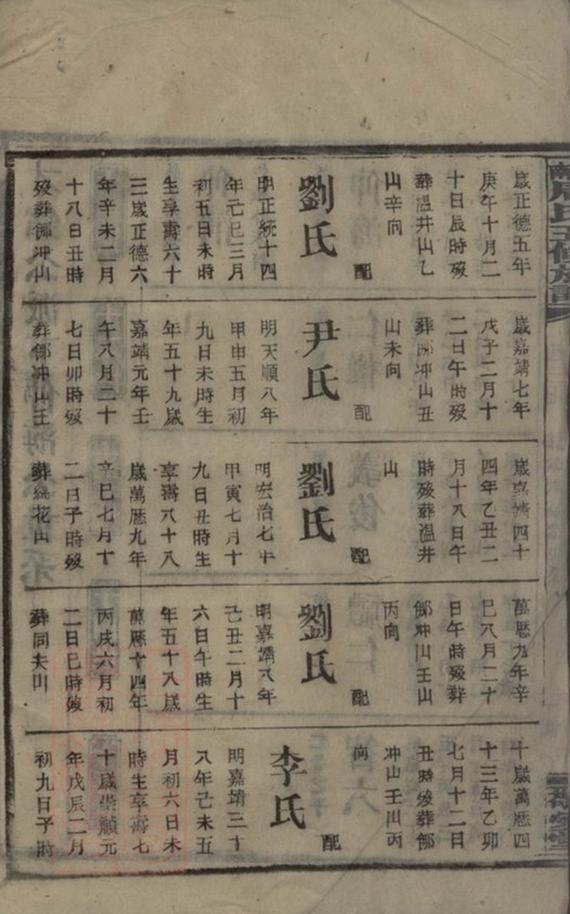 周氏五修族譜
歲正德五年
庚午十月二
十日辰時歿
葬溫井山乙
山辛向
配
劉氏
明正統十四
年己巳三月
初五日未時
生享壽六十
三歲正德六
年辛未二月
十八日丑時
歿葬鄧冲山
歲嘉靖七年
戊子二月十
二日午時歿
葬鄧冲山丑
山未向
配
尹氏
明天順八年
甲申五月初
九日未時生
年五十九歲
嘉靖元年壬
午八月二十
七日卯時歿
葬鄧冲山壬
歲嘉靖四十
四年乙丑二
月十八日午
時歿葬溫井
山
配
劉氏
明宏治七年
甲寅七月十
九日丑時生
享壽八十八
歲萬厯九年
辛巳七月十
二日子時歿
葬花山
萬厯九年辛
巳八月二十
日午時歿葬
鄧冲山壬山
丙向
配
劉氏
明嘉靖八年
己丑二月十
六日午時生
年五十八歲
萬厯十四年
丙戌六月初
二日巳時歿
葬同夫山
十歲萬厯四
十三年乙卯
七月十二日
丑時歿葬鄧
冲山壬山丙
向
配
李氏
明嘉靖三十
八年己未五
月初六日未
時生享壽七
十歲崇禎元
年戊辰二月
初九日子時